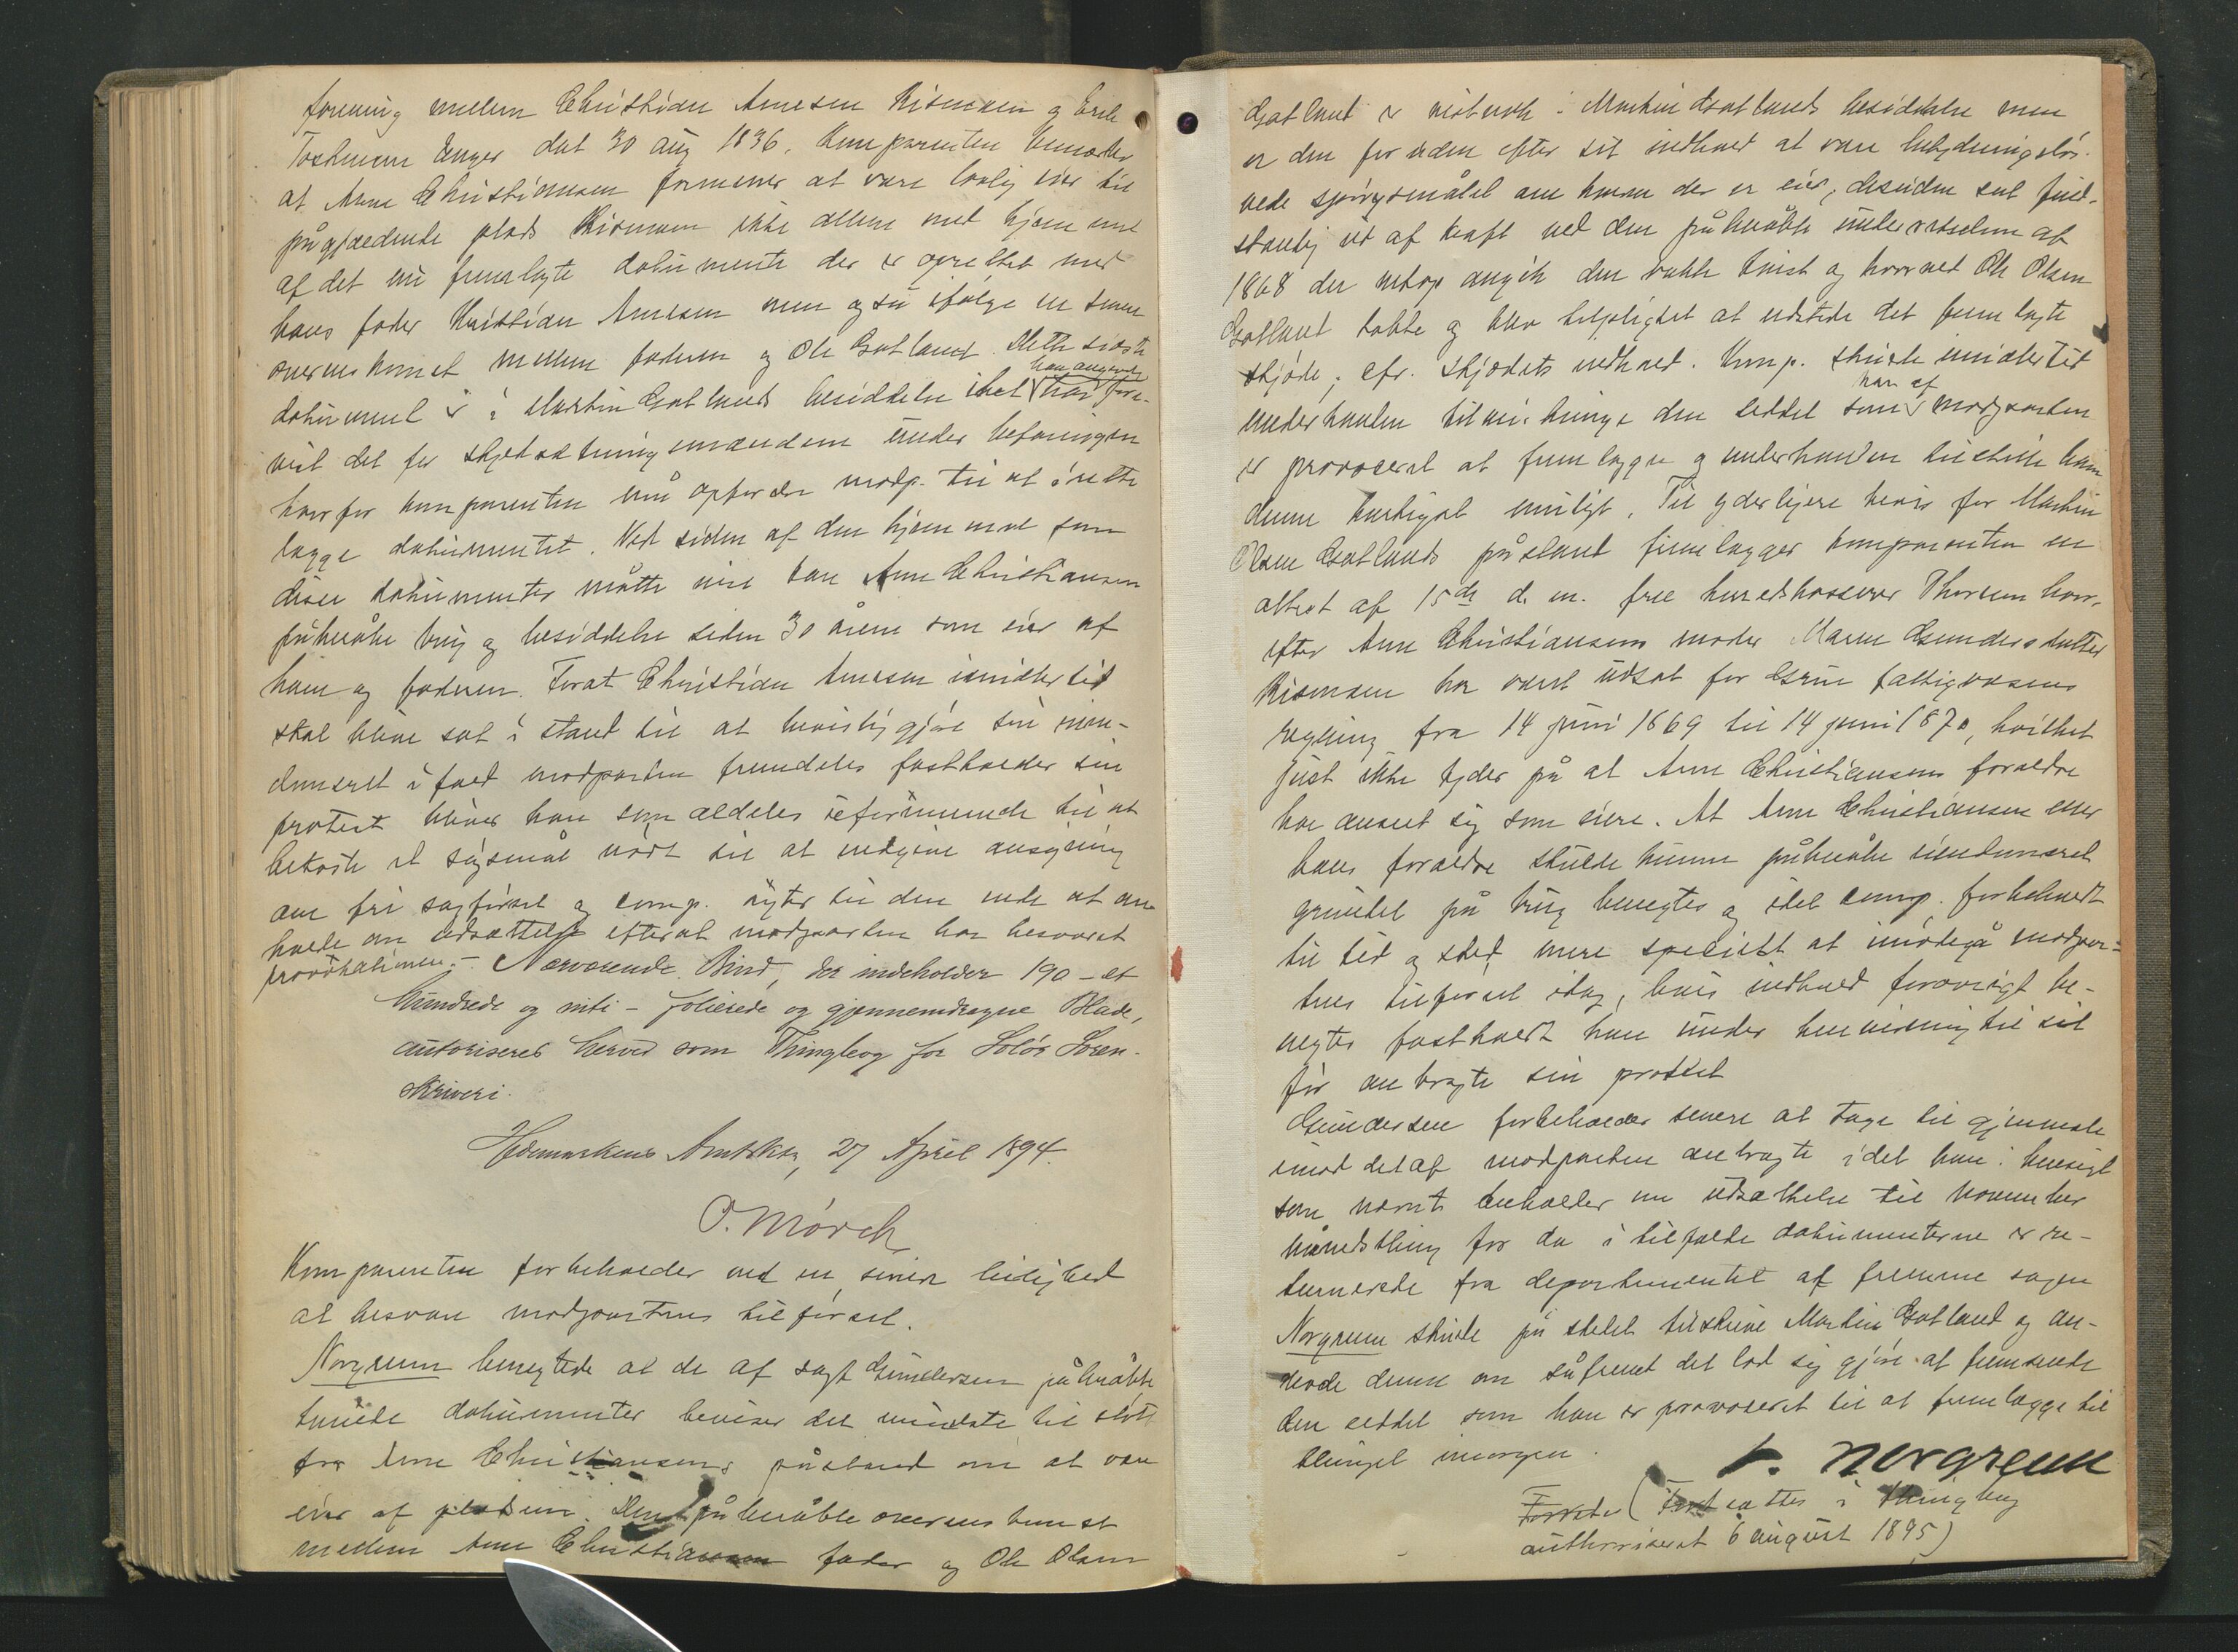 forening mellem Christian Arnesen Risenaaen og Erik
Toshenen Unger dat 30 aug 1836. Komparenten bemærker
at Arne Christiansen formener at være lovlig eier til
pågjældende plads Risenaaen ikke allene med hjemmel
af det nu fremlagte dokumente der er oprettet med
hans fader Kristian Arnesen men også ifølge en senere
overenskomst mellem faderen og Ole Gotland. Dette sidste
han angivelig
dokument er i Martin Gotlands besiddelse idet han fore-
vist det for skjødsætningsmændene under befaringen
hvorfor komparenten må opfordre modp. til at irette
lægge dokumentet. Ved siden af den hjemmel som
disse dokumenter måtte vise kan Arne Christiansen
påberåbe brug og besiddelse siden 30 årene som eier af
ham og faderen. Forat Christian Arnesen imidlertid
skal blive sat i stand til at bevisliggjøre sin eien-
domsret ifald modparten fremdeles fastholder sin
protest bliver han som aldeles uformuende til at
bekoste et søgsmål nødt til at indgive ansøgning
om fri sagførsel og comp. agter til den ende at an
holde om udsættelse efterat modparten har besvaret
provokationen.- Nærværende Bind, der indeholder 190 - et
hundrede og niti - folierede og gjennemdragne Blade,
autoriseres herved som Thingbog for Solør Soren-
skriveri.
Hedemarkens Amtskr, 27 April 1894.
O. Mørch
Komparenten forbeholder ved en senere leilighed
at besvare modpartens tilførsel.
Norgrenn benegtede at de af sagf Gundersen påberåbte
tvende dokumenter beviser det mindste til støtte
for Arne Christiansens påstand om at være
eier af pladsen. Den påberåbte overenskomst
mellem Arne Christiansen fader og Ole Olsen
Gotland er vistnok i Martin Gotlands besiddelse men
er den foruden efter sit indhold at være betydningsløs
vede spørgsmålet om hvem der er eier, desuden sat fuld-
stændig ud af kraft ved den påberåbte underrettsdom af
1868 der netop angik den rakte tvist og hvorved Ole Olsen
Gotland tabte og blev tilpligtet at udstede det fremlagte
skjøde, cfr. skjødets indhold. Komp. skulde imidlertid
han af
underhaanden tilveiebringe den seddel som modparten
er provoseret at fremlægge og underhaanden tilstille ham
denne hurtigst muligt. Til yderligere bevis for Martin
Olsen Gotlands påstand fremlægger komparenten en
attest af 15de d. m. fra herredskasserer Thoresen hvor-
efter Arne Christiansens moder Maren Gundersdatter
Risenaaen har været udsat for Grue fattigvæsens
regning fra 14 juni 1869 til 14 juni 1870, hvilket
just ikke tyder på at Arne Christiansens forældre
har anseet sig som eiere. At Arne Christiansen eller
hans forældre skulde kunne påberåbe eiendomsret
grundet på brug benegtes og idet comp. forbeholdt
til tid og sted mere specielt at imødegå modpar-
tens tilførsel idag, hvis indhold forøvrigt be-
negtes fastholdt han under henvisning til sit
før anbragte sin protest
Gundersen forbeholder senere at tage til gjenmæle
imod det af modparten anbragte idet han i henseigt
som nævnt anholder om udsættelse til November
månedsthing for da i tilfælde dokumenterne er re-
tournerede fra departementet at fremme sagen
Norgrenn skulde på stedet tilskrive Martin Gotland og an-
mode denne om såfremt det lod sig gjøre at fremsende
den seddel som han er provoseret til at fremlægge til
thinget imorgen.
K. Norgrenn
(Fortsættes i Thingbog
authoriseret 6 august 1895)